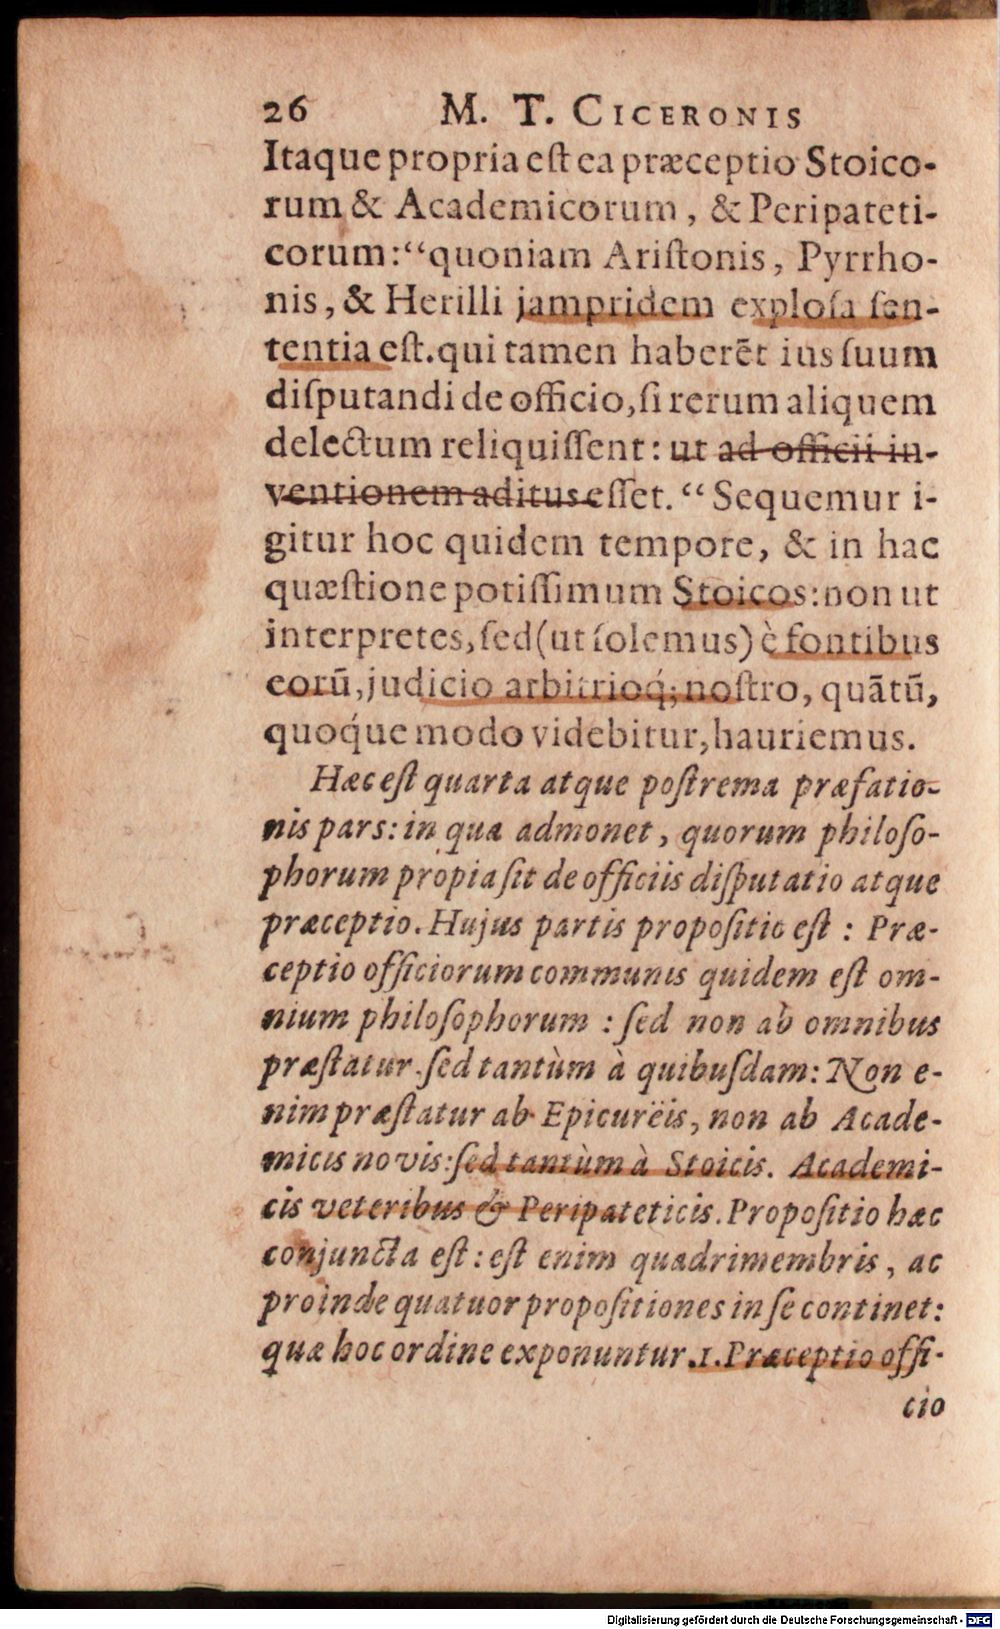 26 M. T. CICERONIS
Itaque propria eſt ea præceptio Stoico-
rum & Academicorum, & Peripateti-
corum:“quoniam Ariſtonis, Pyrrho-
nis, & Herilli jampridem exploſa ſen-
tentia eſt.qui tamen haberēt ius ſuum
diſputandi de officio, ſi rerum aliquem
delectum reliquiſſent: ut ad officii in-
ventionem aditus eſſet. “Sequemur i-
gitur hoc quidem tempore, & in hac
quæſtione potiſſimum Stoicos: non ut
interpretes, ſed (ut ſolemus) è fontibus
eorū, judicio arbitrioq́; noſtro, quātū,
quoq́ue modo videbitur, hauriemus.
Hæc eſt quarta atque poſtrema præfatio-
nis pars: in qua admonet, quorum philoſo-
phorum propia ſit de officiis diſputatio atque
præceptio. Hujus partis propoſitio eſt : Præ-
ceptio officiorum communis quidem eſt om-
nium philoſophorum : ſed non ab omnibus
præſtatur. ſed tantùm à quibuſdam: Non e-
nim præſtatur ab Epicurëis, non ab Acade-
micis novis: ſed tantùm à Stoicis. Academi-
cis veteribus & Peripateticis. Propoſitio hæc
conjuncta eſt: eſt enim quadrimembris, ac
proinde quatuor propoſitiones in ſe continet:
quæ hoc ordine exponuntur. 1. Præceptio offi-
cio
Digitalisierung gefördert durch die Deutsche Forschungsgemeinschaft - DFG